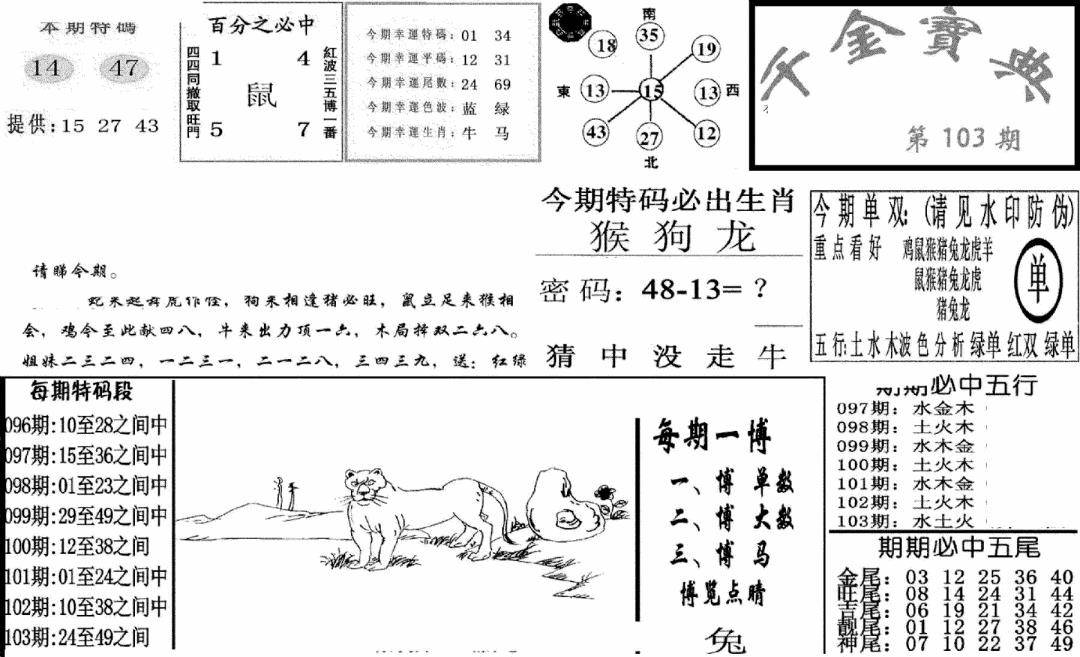 本期特码
14 47
提供:15 27 43
百分之必中
四四同撤取旺門
1 4
鼠
5 7
紅波三五博一番
今期幸運特碼: 01 34
今期幸運平碼: 12 31
今期幸運尾數: 24 69
今期幸運色波: 蓝 绿
今期幸運生肖: 牛 马
南
35
18 19
東 13 15 13 西
43 27 12
北
金寶典
第103期
请睇今期。
蛇来起舞虎作怪，狗来相逢猪必旺，鼠立足来猴相
会，鸡今至此献四八，牛来出力顶一六，木局择双二六八。
姐妹二三二四，一二三一，二一二八，三四三九，送：红绿
今期特码必出生肖
猴 狗 龙
密码：48-13=？
猜 中 没 走 牛
今期单双：(请见水印防伪)
重点看好
鸡鼠猴猪兔龙虎羊
鼠猴猪兔龙虎
猪兔龙
单
五行:土水木波色分析绿单红双绿单
每期特码段
096期:10至28之间中
097期:15至36之间中
098期:01至23之间中
099期:29至49之间中
100期:12至38之间
101期:01至24之间中
102期:10至38之间中
103期:24至49之间
每期一博
一、博单数
二、博大数
三、博马
博览点睛
兔
期期必中五行
097期：水金木
098期：土火木
099期：水木金
100期：土火木
101期：水木金
102期：土火木
103期：水土火
期期必中五尾
金尾：03 12 25 36 40
旺尾：08 14 24 31 44
吉尾：06 19 21 34 42
靓尾：01 12 27 38 46
神尾：07 10 22 37 49